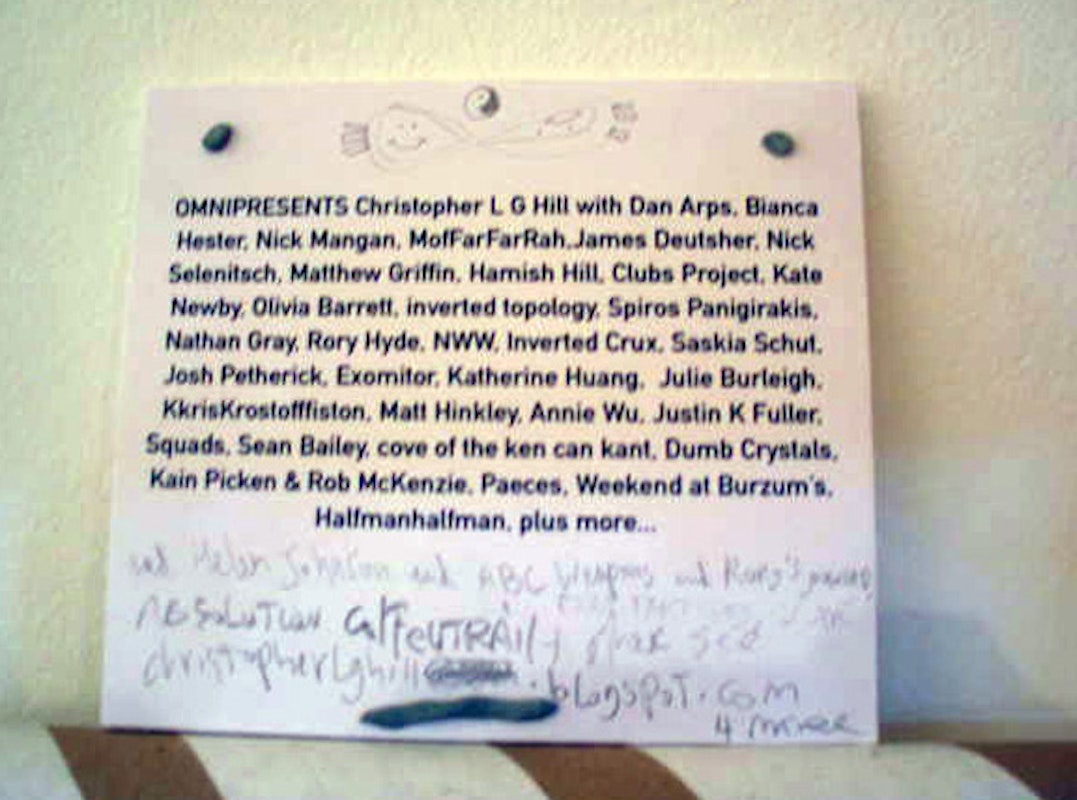 OMNIPRESENTS Christopher L G Hill with Dan Arps, Bianca
Hester, Nick Mangan, MofFarFarRah,James Deutsher, Nick
Selenitsch, Matthew Griffin, Hamish Hill, Clubs Project, Kate
Newby, Olivia Barrett, inverted topology, Spiros Panigirakis,
Nathan Gray, Rory Hyde, NWW, Inverted Crux, Saskia Schut,
Josh Petherick, Exomitor, Katherine Huang, Julie Burleigh,
KkrisKrostofffiston, Matt Hinkley, Annie Wu, Justin K Fuller,
Squads, Sean Bailey, cove of the ken can kant, Dumb Crystals,
Kain Picken & Rob McKenzie, Paeces, Weekend at Burzum's,
Halfmanhalfman, plus more...
and Helen Johnson and ABC Weapons and
christopherlghill .blogspot.com
4